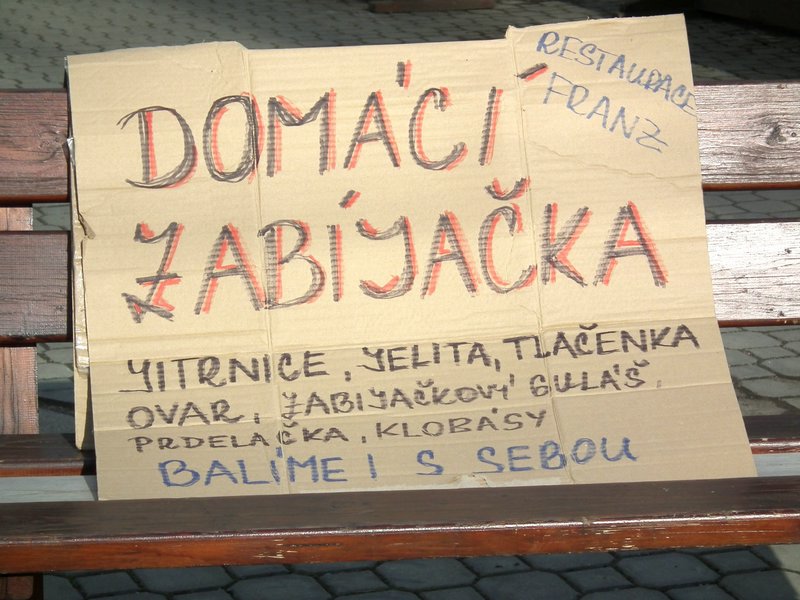 RESTAURACE
FRANZ
DOMÁCÍ
ZABÍJAČKA
JITRNICE, JELITA, TLAČENKA
OVAR, ZABIJAČKOVÝ GULÁŠ,
PRDELAČKA, KLOBÁSY
BALÍME I S SEBOU